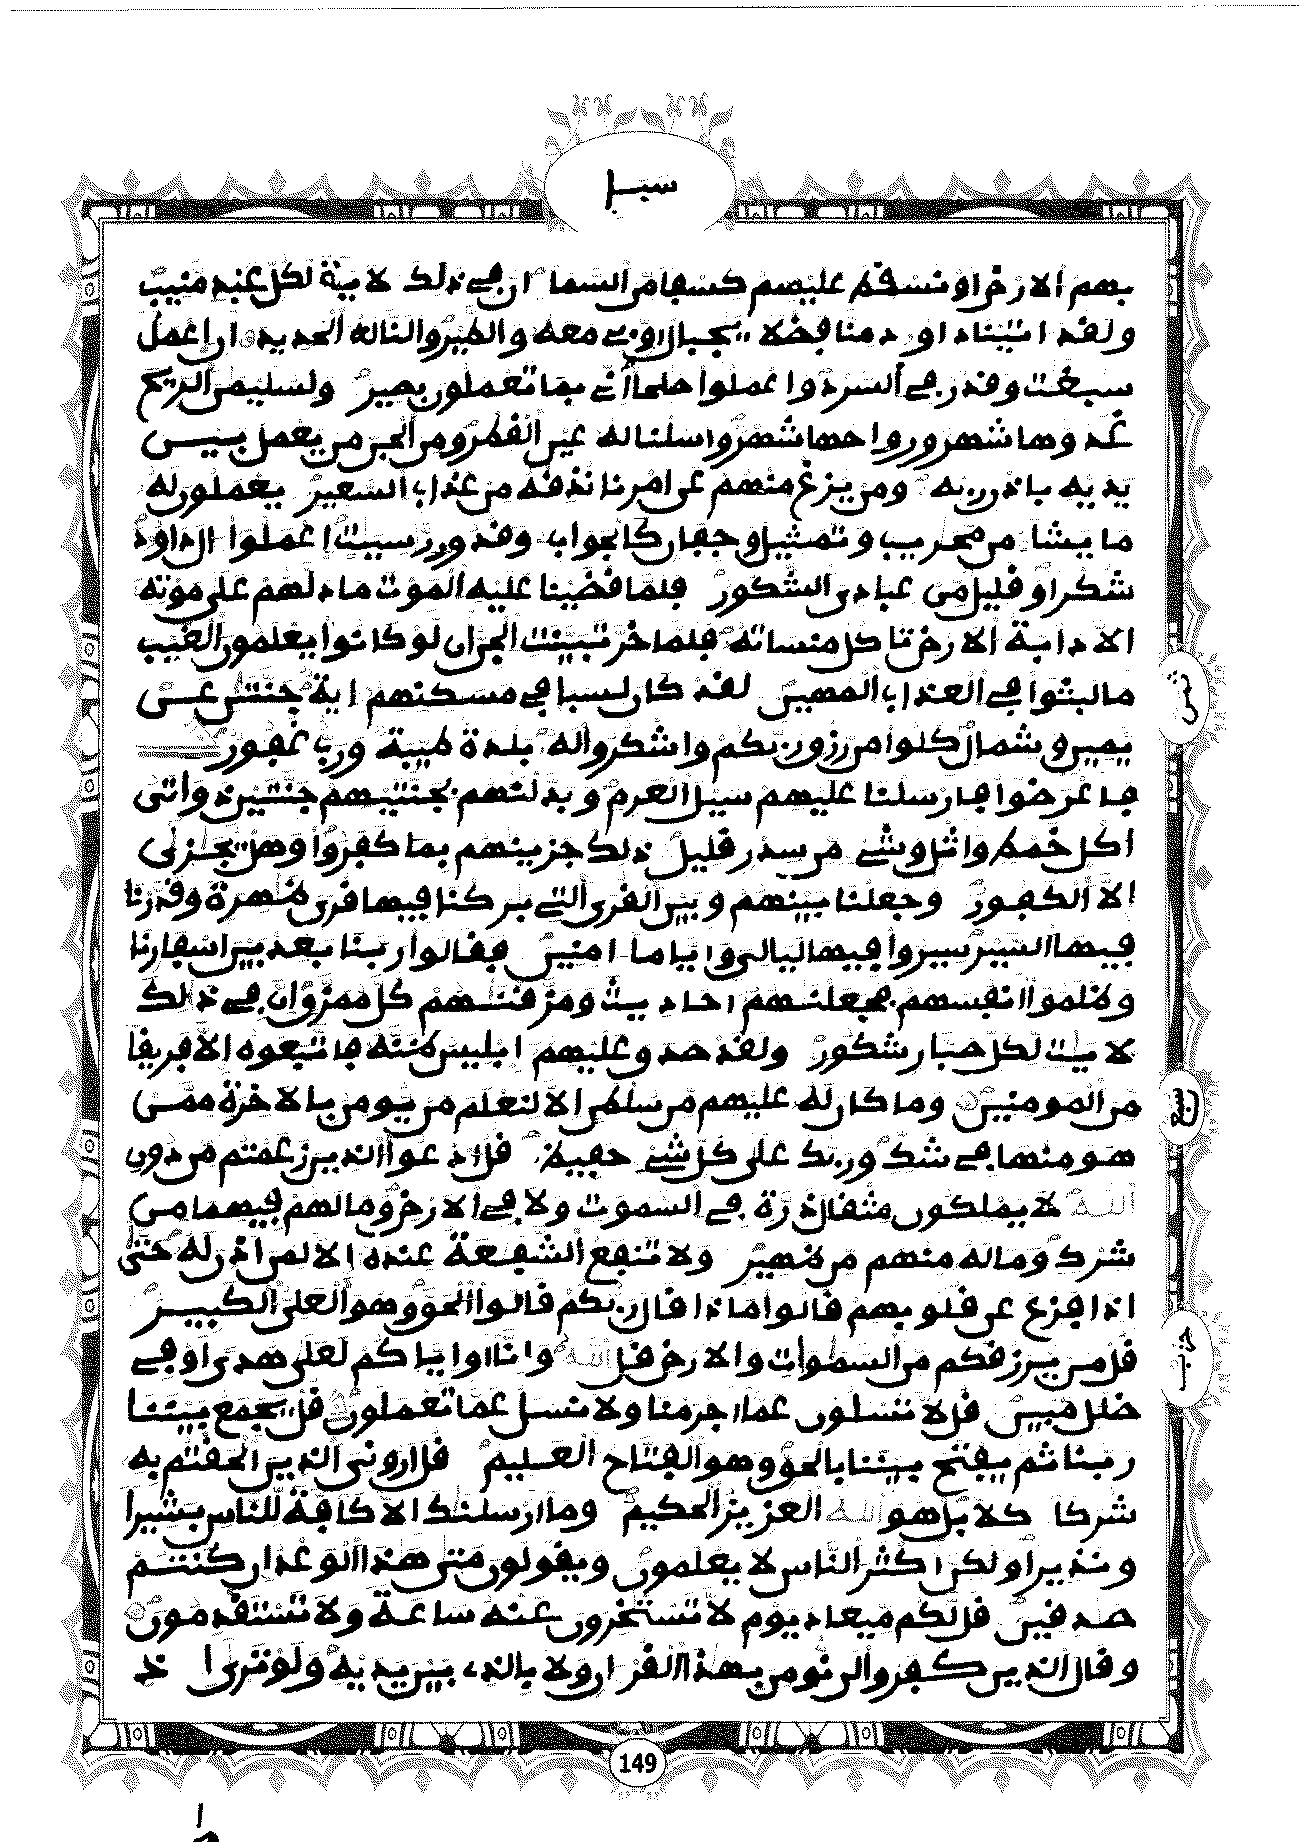 سبا
بهم الارض او نسقط عليهم كسفا من السما ان في ذلك لاية لكل عبد منيب
ولقد اتينا داوود منا فضلا يجبال اوبي معه والطير والنا له الحديد ان اعمل
سبغت وقدر في السرد واعملوا صلحا اني بما تعملون بصير ولسليمن الريح
غدوها شهر ورواحها شهر واسلنا له عين القطر ومن الجن من يعمل بيـــن
يديه باذن ربه ومن يزغ منهم عن امرنا نذقه من عذاب السعير يعملون له
ما يشا من محريب وتمثيل وجفان كالجواب وقدور رسيت اعملوا ال داود
شكرا وقليل من عبادي الشكور فلما قضينا عليه الموت ما دلهم على موته
الا دابة الارض تاكل منساته فلما خر تبينت الجن ان لو كانوا يعلمون الغيب
ما لبثوا في العذاب المهين لقد كان لسبا في مسكنهم اية جنتن عن
يمين وشمال كلوا من رزق ربكم واشكروا له بلدة طيبة ورب غفور
فاعرضوا فارسلنا عليهم سيل العرم وبدلنهم بجنتيهم جنتين ذواتى
اكل خمط واثل وشي من سدر قليل ذلك جزينهم بما كفروا وهل يجزى
الا الكفور وجعلنا بينهم وبين القرى التي بركنا فيها قرى ظهرة وقدرنا
فيها السير سيروا فيها ليالي واياما امنين فقالوا ربنا بعد بين اسفارنا
وظلموا انفسهم فجعلنهم احاديث ومزقنهم كل ممزق ان في ذلك
لايت لكل صبار شكور ولقد صدق عليهم ابليس ظنه فاتبعوه الا فريقا
من المومنين وما كان له عليهم من سلطن الا لنعلم من يومن بالاخرة ممـن
هو منها في شك وربك على كل شي حفيظ قل ادعوا الذين زعمتم من دون
الله لا يملكون مثقال ذرة في السموت ولا في الارض وما لهم فيهما من
شرك وما له منهم من ظهير ولا تنفع الشفعة عنده الا لمن اذن له حتى
اذا فزع عن قلوبهم قالوا ماذا قال ربكم قالوا الحق وهو العلي الكبيـر
قل من يرزقكم من السموات والارض قل الله وانا او اياكم لعلى هدى او في
ضلل مبين قل لا تسلون عما اجرمنا ولا نسل عما تعملون قل يجمع بيننا
ربنا ثم يفتح بيننا بالحق وهو الفتاح العليم قل اروني الذين الحقتم به
شركا كلا بل هو الله العزيز الحكيم وما ارسلنك الا كافة للناس بشيرا
ونذيرا ولكن اكثر الناس لا يعلمون ويقولون متى هذا الوعد ان كنتـم
صدقين قل لكم ميعاد يوم لا تستخرون عنه ساعة ولا تستقدمون
وقال الذين كفروا لن نومن بهذا القران ولا بالذي بين يديه ولو ترى ا ذ
ثمن
ربع
حزب
149